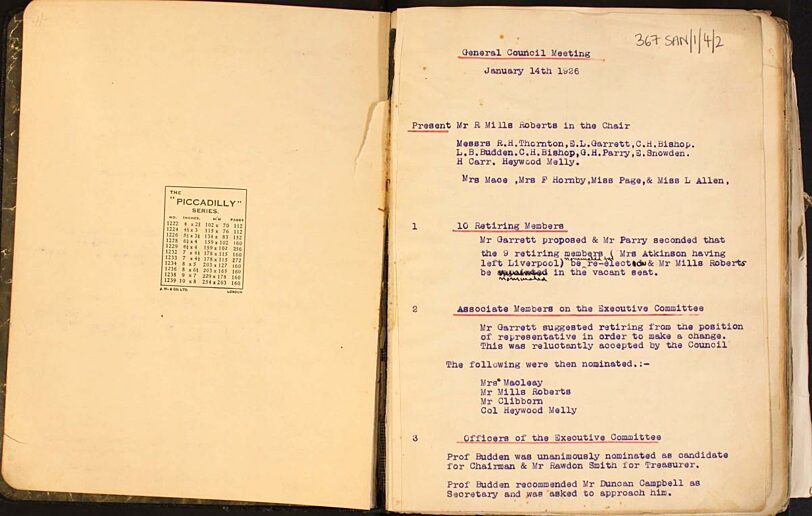 THE
"PICCADILLY"
SERIES.
NO. INCHES. M'M PAGES
1222 4 x 2¾ 102 x 70 112
1224 4½ x 3 115 x 76 112
1226 5¼ x 3¼ 134 x 83 152
1228 6¼ x 4 159 x 102 160
1229 6¼ x 4 159 x 102 256
1232 7 x 4½ 178 x 115 160
1233 7 x 4½ 178 x 115 272
1234 8 x 5 203 x 127 160
1236 8 x 6½ 203 x 165 160
1238 9 x 7 229 x 178 160
1239 10 x 8 254 x 203 160
LONDON
367 SAN/1/4/2
General Council Meeting
January 14th 1926
Present Mr R Mills Roberts in the Chair
Messrs R.H.Thornton,E.L.Garrett,C.H.Bishop.
L.B.Budden.C.H.Bishop,G.H.Parry,E.Snowden.
H Carr. Heywood Melly.
Mrs Mace ,Mrs F Hornby,Miss Page,& Miss L Allen,
1 10 Retiring Members
Mr Garrett proposed & Mr Parry seconded that
the 9 retiring members ( Mrs Atkinson having
left Liverpool) be re-elected & Mr Mills Roberts
be nominated in the vacant seat.
2 Associate Members on the Executive Committee
Mr Garrett suggested retiring from the position
of representative in order to make a change.
This was reluctantly accepted by the Council
The following were then nominated.:-
Mrs Macleay
Mr Mills Roberts
Mr Clibborn
Col Heywood Melly
3 Officers of the Executive Committee
Prof Budden was unanimously nominated as candidate
for Chairman & Mr Rawdon Smith for Treasurer.
Prof Budden recommended Mr Duncan Campbell as
Secretary and was asked to approach him.